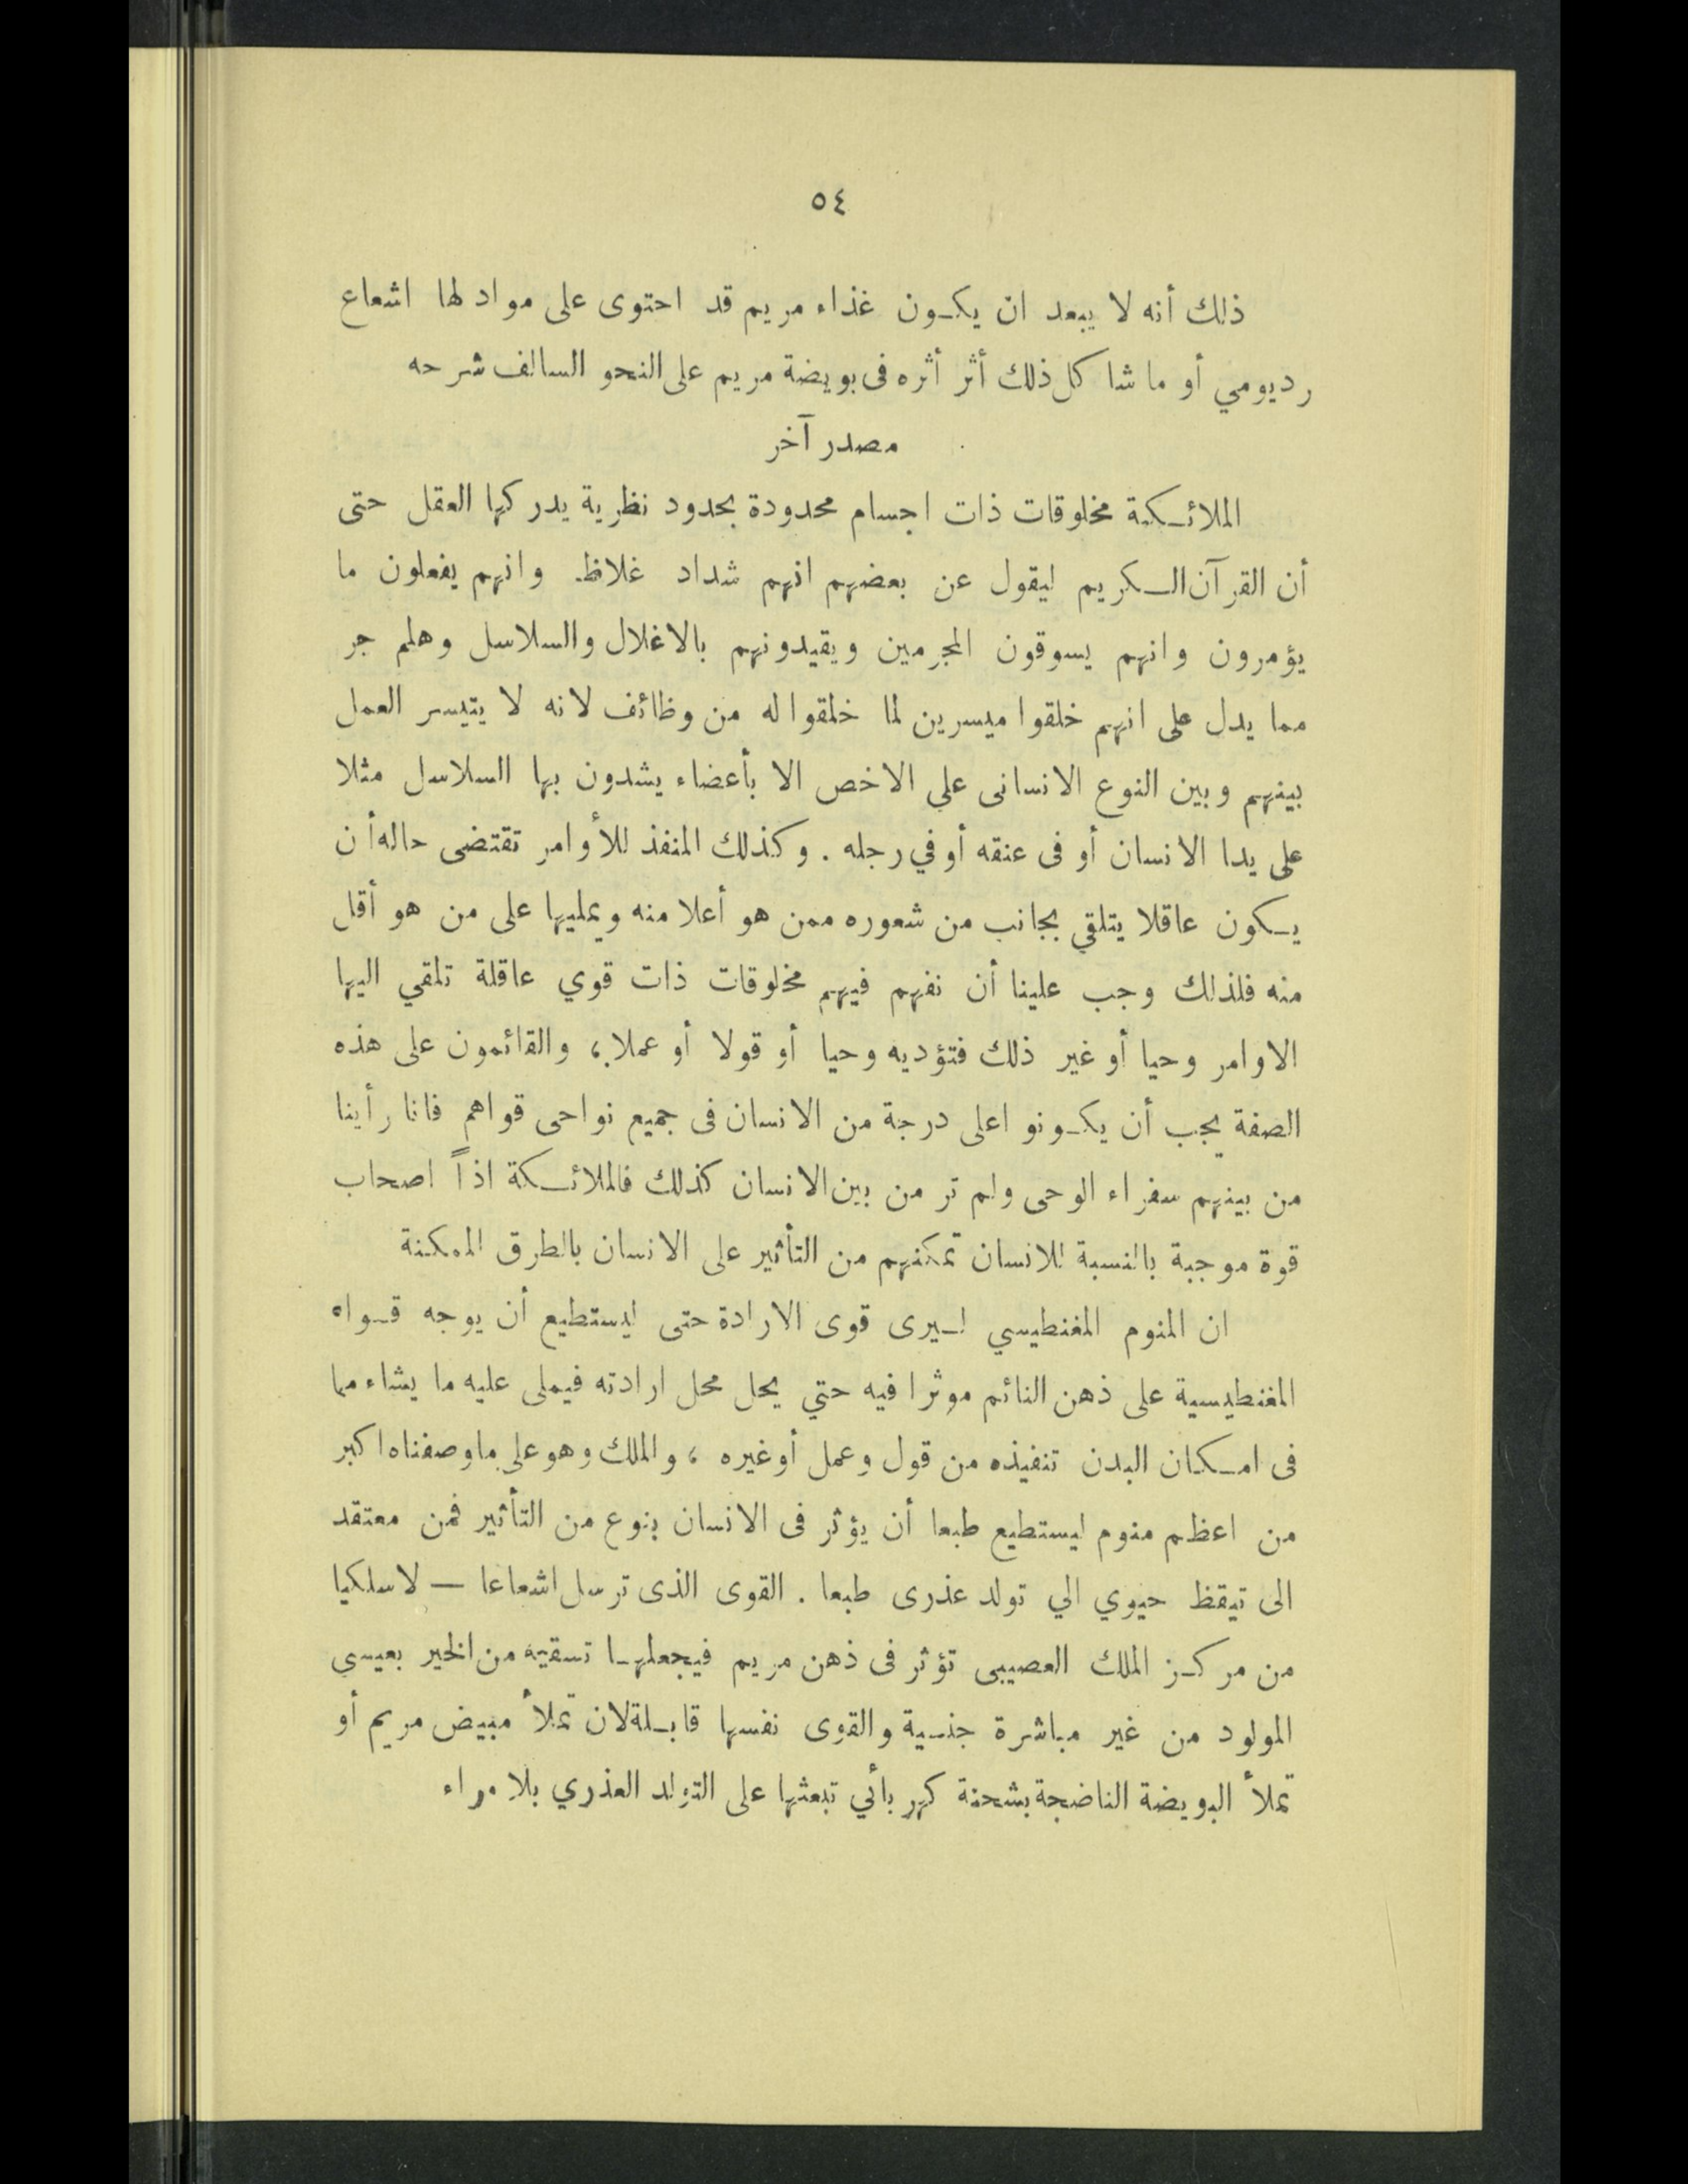 ٥٤
ذلك أنه لا يبعد ان يكون غذاء مريم قد احتوى على مواد لها اشعاع
رديومي أو ما شا كل ذلك أثر أثره فى بويضة مريم على النحو السالف شرحه
مصدر آخر
الملائكة مخلوقات ذات اجسام محدودة بحدود نظرية يدركها العقل حتى
أن القرآن الكريم ليقول عن بعضهم انهم شداد غلاظ. وانهم يفعلون ما
يؤمرون وانهم يسوقون المجرمين ويقيدونهم بالاغلال والسلاسل وهلم جر
مما يدل على انهم خلقوا ميسرين لما خلقوا له من وظائف لانه لا يتيسر العمل
بينهم وبين النوع الانسانى علي الاخص الا بأعضاء يشدون بها السلاسل مثلا
على يدا الانسان أو فى عنقه أو في رجله . وكذلك المنفذ للأوامر تقتضى حاله أن
يكون عاقلا يتلقي بجانب من شعوره ممن هو أعلا منه ويمليها على من هو أقل
منه فلذلك وجب علينا أن نفهم فيهم مخلوقات ذات قوي عاقلة تلقي اليها
الاوامر وحيا أو غير ذلك فتؤديه وحيا أو قولا أو عملا ، والقائمون على هذه
الصفة يجب أن يكونو اعلى درجة من الانسان فى جميع نواحى قواهم فانا رأينا
من بينهم سفراء الوحى ولم تر من بين الانسان كذلك فالملائكة اذاً اصحاب
قوة موجبة بالنسبة للانسان تمكنهم من التأثير على الانسان بالطرق الممكنة
ان المنوم المغنطيسي ليرى قوى الارادة حتى ليستطيع أن يوجه قواه
المغنطيسية على ذهن النائم موثرا فيه حتي يحل محل ارادته فيملى عليه ما يشاء مما
فى امكان البدن تنفيذه من قول وعمل أو غيره ، والملك وهو على ما وصفناه اكبر
من اعظم منوم ليستطيع طبعا أن يؤثر فى الانسان بنوع من التأثير فمن معتقد
الى تيقظ حيوي الي تولد عذرى طبعا . القوى الذى ترسل اشعاعا — لاسلكيا
من مركز الملك العصيبى تؤثر فى ذهن مريم فيجعلها تسقيه من الخير بعيسي
المولود من غير مباشرة جنسية والقوى نفسها قابلة لان تملأ مبيض مريم أو
تملأ البويضة الناضجة بشحنة كهربأئي تبعثها على التولد العذري بلا مراء